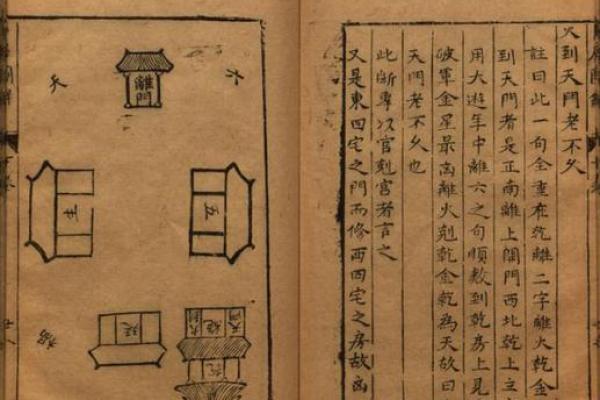 火到天門老不乆
註曰此一句全重在乾離二字離火乾金
到天門者是正南離上開門西北乾上立
用大遊年中離六之句順數到乾房上見
破軍金星最㐫離火剋乾金乾為天故曰
天門老不乆也
此斷專以官剋宮者言之
又是東四宅之門而修西四宅之房故㐫
六
離門
天
五
禍